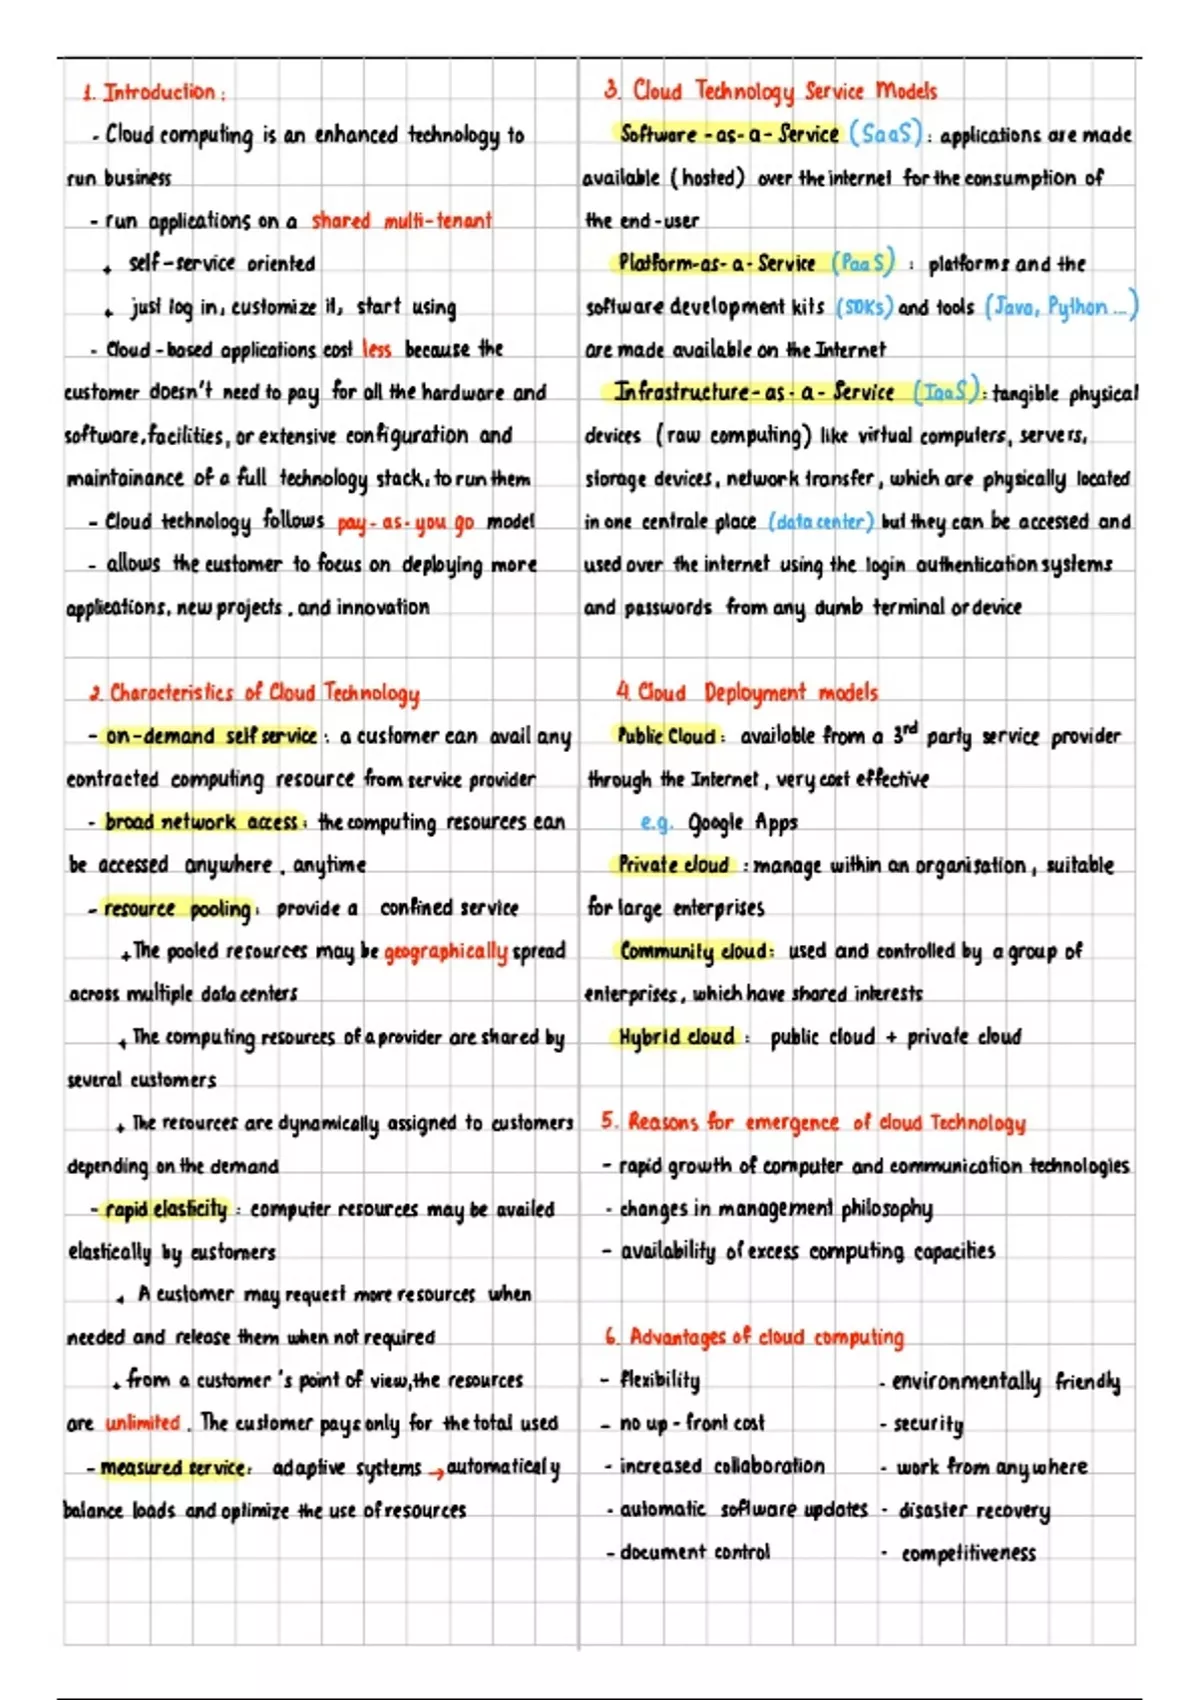 1. Introduction :
- Cloud computing is an enhanced technology to
run business
- run applications on a shared multi-tenant
+ self-service oriented
+ just log in, customize it, start using
- Cloud-based applications cost less because the
customer doesn't need to pay for all the hardware and
software, facilities, or extensive configuration and
maintainance of a full technology stack, to run them
- Cloud technology follows pay-as-you go model
- allows the customer to focus on deploying more
applications, new projects, and innovation
2. Characteristics of Cloud Technology
- on-demand self service : a customer can avail any
contracted computing resource from service provider
- broad network access : the computing resources can
be accessed anywhere, anytime
- resource pooling : provide a confined service
+ The pooled resources may be geographically spread
across multiple data centers
+ The computing resources of a provider are shared by
several customers
+ The resources are dynamically assigned to customers
depending on the demand
- rapid elasticity : computer resources may be availed
elastically by customers
+ A customer may request more resources when
needed and release them when not required
+ from a customer 's point of view, the resources
are unlimited. The customer pays only for the total used
- measured service : adaptive systems → automaticaly
balance loads and optimize the use of resources
3. Cloud Technology Service Models
Software-as-a-Service (SaaS) : applications are made
available (hosted) over the internet for the consumption of
the end-user
Platform-as-a-Service (PaaS) : platforms and the
software development kits (SDKs) and tools (Java, Python...)
are made available on the Internet
Infrastructure-as-a-Service (IaaS) : tangible physical
devices (raw computing) like virtual computers, servers,
storage devices, network transfer, which are physically located
in one centrale place (data center) but they can be accessed and
used over the internet using the login authentication systems
and passwords from any dumb terminal or device
4. Cloud Deployment models
Public Cloud : available from a 3rd party service provider
through the Internet, very cost effective
e.g. Google Apps
Private cloud : manage within an organisation, suitable
for large enterprises
Community cloud : used and controlled by a group of
enterprises, which have shared interests
Hybrid cloud : public cloud + private cloud
5. Reasons for emergence of cloud Technology
- rapid growth of computer and communication technologies
- changes in management philosophy
- availability of excess computing capacities
6. Advantages of cloud computing
- flexibility
- no up-front cost
- increased collaboration
- automatic software updates
- document control
- environmentally friendly
- security
- work from anywhere
- disaster recovery
- competitiveness